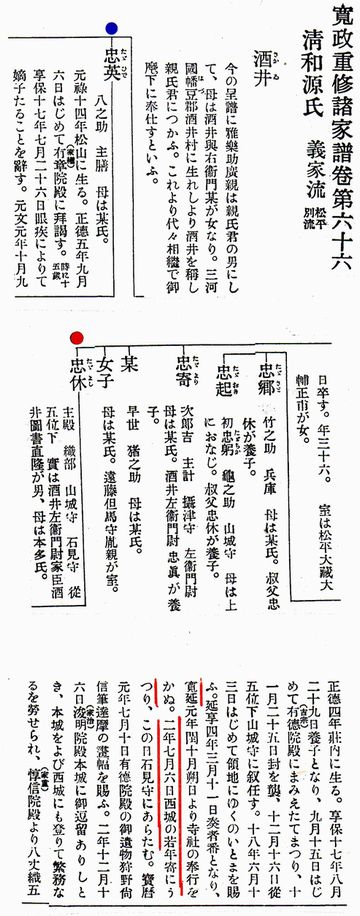 寛政重修諸家譜卷第六十六
清和源氏 義家流 松平別流
酒井
さかゐ
今の呈譜に雅樂助廣親は親氏君の男にし
て、母は酒井與右衞門某が女なり。三河
國幡豆郡酒井村に生れしより酒井を稱し
親氏君につかふ。これより代々相繼で御
麾下に奉仕すといふ。
忠英
たゞひで
八之助 主膳 母は某氏。
元祿十四年松山に生る。正德五年九月
六日はじめて有章院殿(家繼)に拜謁す。時に十五歲
享保十七年七月二十六日眼疾によりて
嫡子たることを辭す。元文元年十月九
日卒す。年三十六。 室は松平大藏大
輔正甫が女。
忠鄉
たゞさと
竹之助 兵庫 母は某氏。叔父忠
休が養子。
忠起
たゞおき
初忠躬 龜之助 山城守 母は上
におなじ。叔父忠休が養子。
忠寄
たゞより
次郎吉 主計 攝津守 左衞門尉
母は某氏。酒井左衞門尉忠眞が養
子。
某
早世 猪之助 母は某氏。
女子
母は某氏。遠藤但馬守胤親が室。
忠休
たゞよし
主殿 織部 山城守 石見守 從
五位下 實は酒井左衞門尉家臣酒
井圖書直隆が男、母は本多氏。
正德四年莊內に生る。享保十七年八月
二十九日養子となり、九月十五日はじ
めて有德院殿(吉宗)にまみえたてまつり、十
一月二十五日封を襲、十二月十六日從
五位下山城守に敍任す。十八年六月十
三日はじめて領地にゆくのいとまを賜
ふ。延享四年三月十一日奏者番となり、
寬延元年閏十月朔日より寺社の奉行を
かぬ。二年七月六日西城の若年寄にう
つり、この日石見守にあらたむ。寶曆
元年七月十日有德院殿の御遺物狩野尙
信筆達摩の畫幅を賜ふ。二年十二月十
六日浚明院殿(家治)本城に御逗留ありしと
き、本城をよび西城にも登りて繁務な
るを勞せられ、惇信院殿(家重)より八丈織五